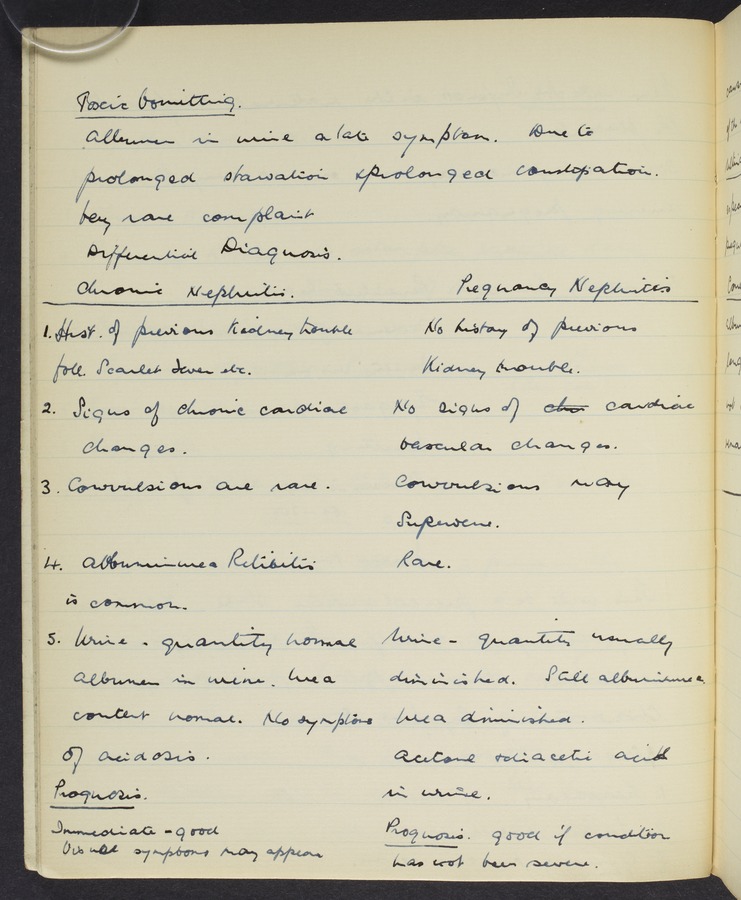 Toxic Vomitting.
Albumen in urine a late symptom. Due to
prolonged starvation & prolonged constipation.
Very rare complaint
Differential Diagnosis.
Chronic Nephritis. Pregnancy Nephritis
1. Hist. of previous Kidney trouble No history of previous
foll. Scarlet Fever etc. Kidney trouble.
2. Signs of chronic cardiac No signs of cardiac
changes. vascular changes.
3. Convulsions are rare. Convulsions may
Supervene.
4. Albuminurea Retinitis Rare.
is common.
5. Urine - quantity normal Urine - quantity usually
Albumen in urine. Urea diminished. Still albuminurea.
content normal. No symptoms Urea diminished.
of acidosis. acetone & diacetic acid
Prognosis. in urine.
Immediate - good Prognosis. good if condition
Visual symptoms may appear has not been severe.